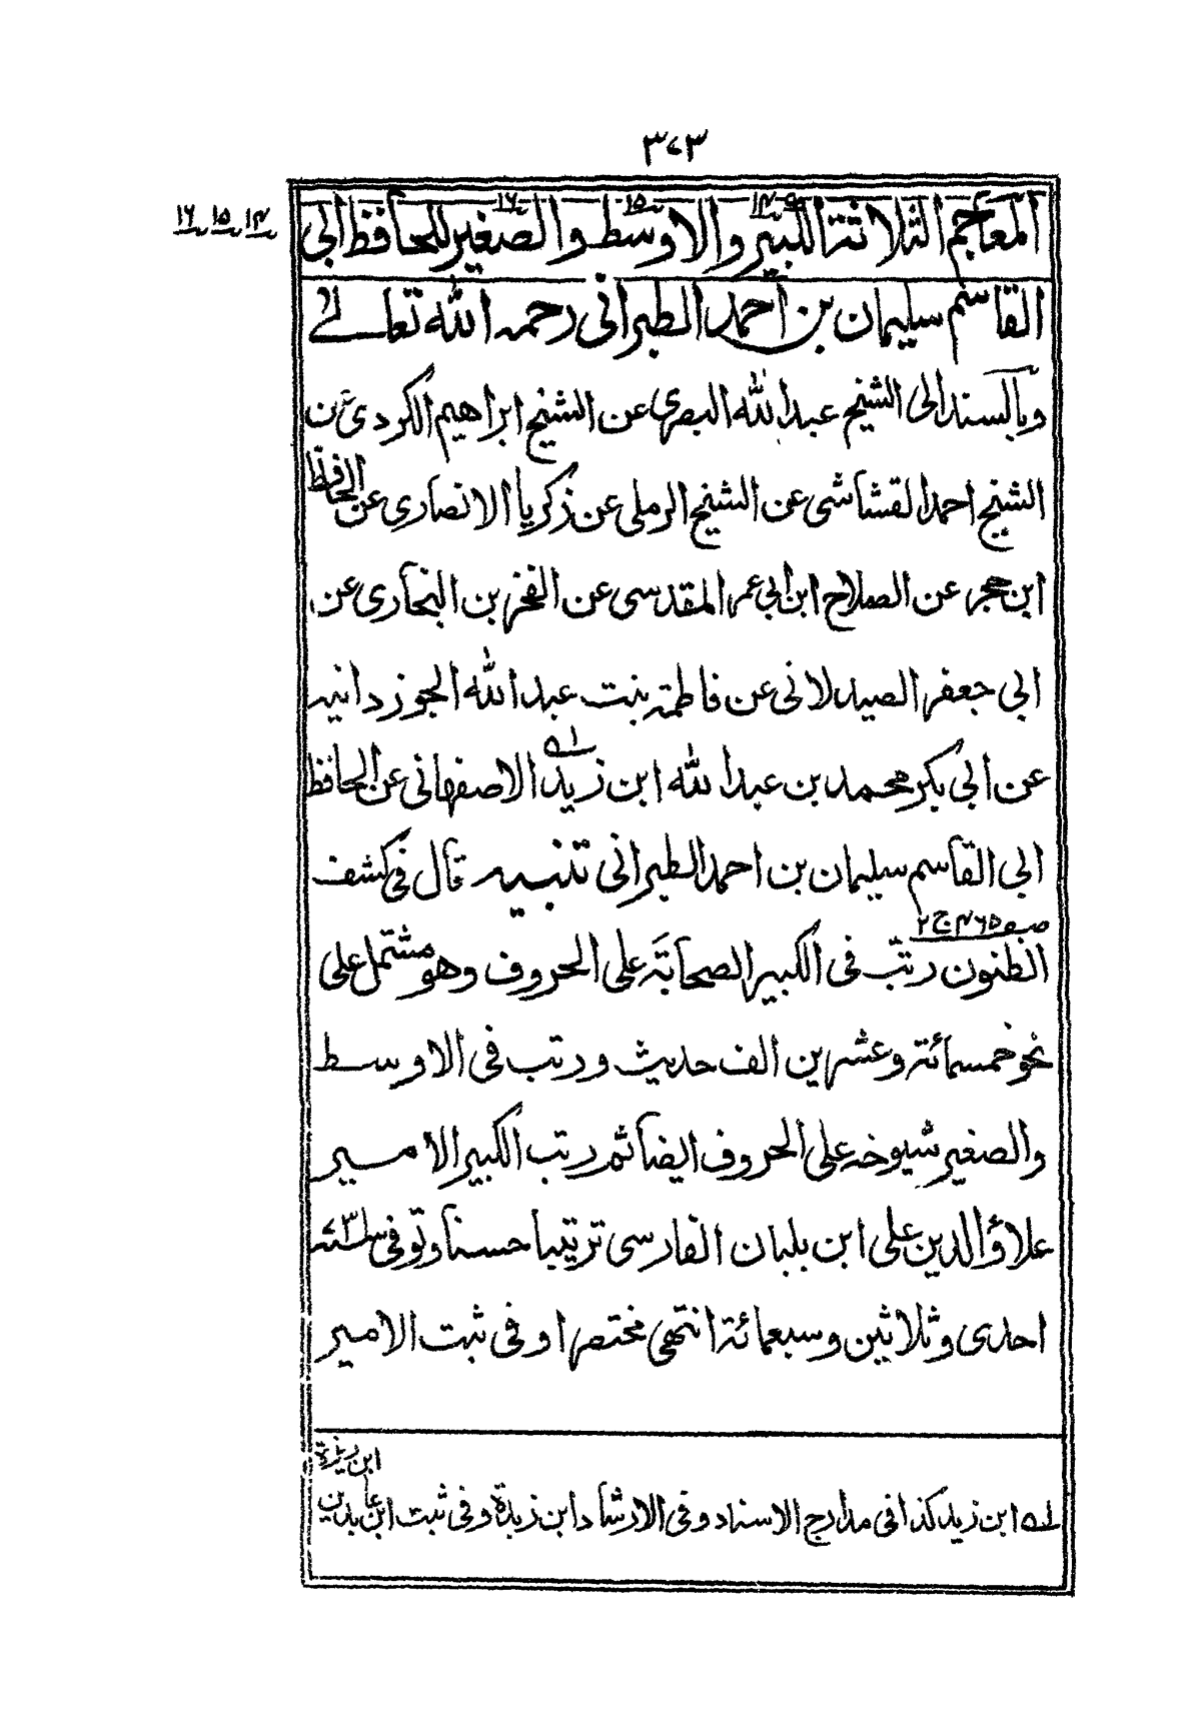 ٣٧٣
١٤ ١٥ ١٦
المعاجم الثلاثة الكبير والاوسط والصغير للحافظ ابى
القاسم سليمان بن احمد الطبرانى رحمه الله تعالے
وبالسند الى الشيخ عبد الله البصرى عن الشيخ ابراهيم الكردى عن
الشيخ احمد القشاشى عن الشيخ الرملى عن زكريا الانصارى عن الحافظ
ابن حجر عن الصلاح ابن ابى عمر المقدسى عن الفخر بن البخارى عن
ابى جعفر الصيدلانى عن فاطمة بنت عبد الله الجوزدانيه
عن ابى بكر محمد بن عبد الله ابن زيد الاصفهانى عن الحافظ
ابى القاسم سليمان بن احمد الطبرانى تنبيه قال فى كشف
صـ ٤٦٥ ج ٢
الظنون رتب فى الكبير الصحابة على الحروف وهو مشتمل على
نحو خمسمائة وعشرين الف حديث ورتب فى الاوسط
والصغير شيوخه على الحروف ايضا ثم رتب الكبير الامير
علاؤ الدين على ابن بلبان الفارسى ترتيبا حسنا وتوفى سنة ٧٣١
احدى وثلاثين وسبعمائة انتهى مختصرا وفى ثبت الامير
ابن ريذة
له ابن زيد كذا فى مدارج الاسناد وفى الارشاد ابن زبدة وفى ثبت ابن عابدين